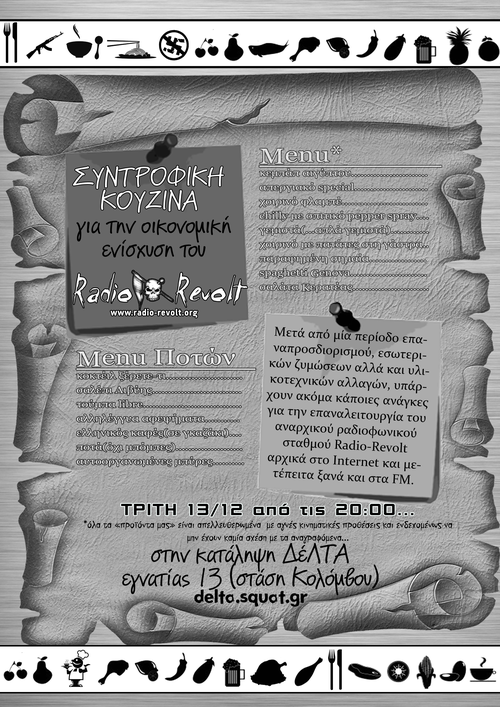 ΣΥΝΤΡΟΦΙΚΗ
ΚΟΥΖΙΝΑ
για την οικονομική
ενίσχυση του
Radio Revolt
www.radio-revolt.org
Menu*
κεμπάπ αιγύπτου
απεργιακό special
χοιρινό φλαμπέ
chilly με σπιτικό pepper spray
γεμιστά(...απλά γεμιστά)
χοιρινό με πατάτες στη γάστρα
παραψημένη σημαία
spaghetti Genova
σαλάτα Κερατέας
Menu Ποτών
κοκτέιλ ξέρετε-τι
σαλέπι Λιβύης
τσίμπα libre
αλληλέγγυα αφεψήματα
ελληνικός καφές(σε γκαζάκι)
ποτά(όχι μπόμπες)
αυτοοργανωμένες μπύρες
Μετά από μία περίοδο επα-
ναπροσδιορισμού, εσωτερι-
κών ζυμώσεων αλλά και υλι-
κοτεχνικών αλλαγών, υπάρ-
χουν ακόμα κάποιες ανάγκες
για την επαναλειτουργία του
αναρχικού ραδιοφωνικού
σταθμού Radio-Revolt
αρχικά στο Internet και με-
τέπειτα ξανά και στα FM.
ΤΡΙΤΗ 13/12 από τις 20:00...
*όλα τα «προϊόντα μας» είναι απελλευθερωμένα με αγνές κινηματικές προθέσεις και ενδεχομένως να
μην έχουν καμία σχέση με τα αναγραφόμενα...
στην κατάληψη ΔέΛΤΑ
εγνατίας 13 (στάση Κολόμβου)
delta.squat.gr